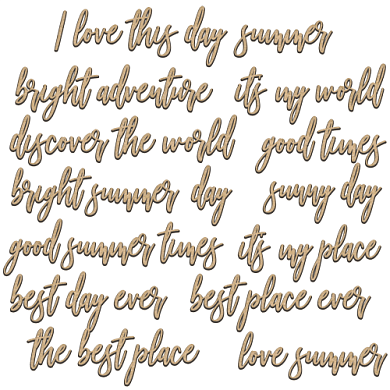 I love this day summer
bright adventure it's my world
discover the world good times
bright summer day sunny day
good summer times it's my place
best day ever best place ever
the best place love summer